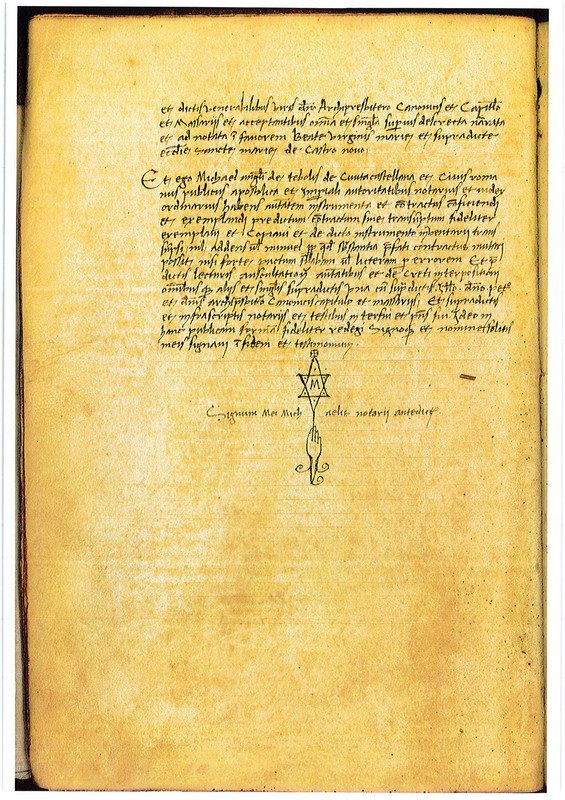 et dictis venerabilibus viris dno Archipresbitero Canonicis et Capitlo
et Massariis et acceptantibus omia et singla supius descrecta narrata
et ad notata favorem Beate virginis marie et supradicte
ecclie sancte marie de Castro novo
Et ego Michael angli de tebolis de Ciuitacastellana et Civis roma
nus publicus apostolica et impiali autoritatibus notarius et iudex
ordinarius habens autatem instrumenta et contractus
et exemplandi predictum contractum sive transuptum fideliter
exemplavi et Copiavi et de dicto instrumento inventarii trans
supsi nil addens vel minuens qd substantia pfati contractus mutari
possit nisi forte punctum sillabam vel literam p errorem Et
dictis lecturis auscultation autatibus et de Creti interpositioni
omibus aliis et singlis supradictis
et archipsbito Canonicis capitulo et massariis Et supradictis
et infrascriptis notariis et testibus interfui et ideo in
hanc publicam formam fideliter redegi Signoq et nomine solitis
meis signavi fidem et testimonium
M
Signum Mei Mich aelis notarii antedicti